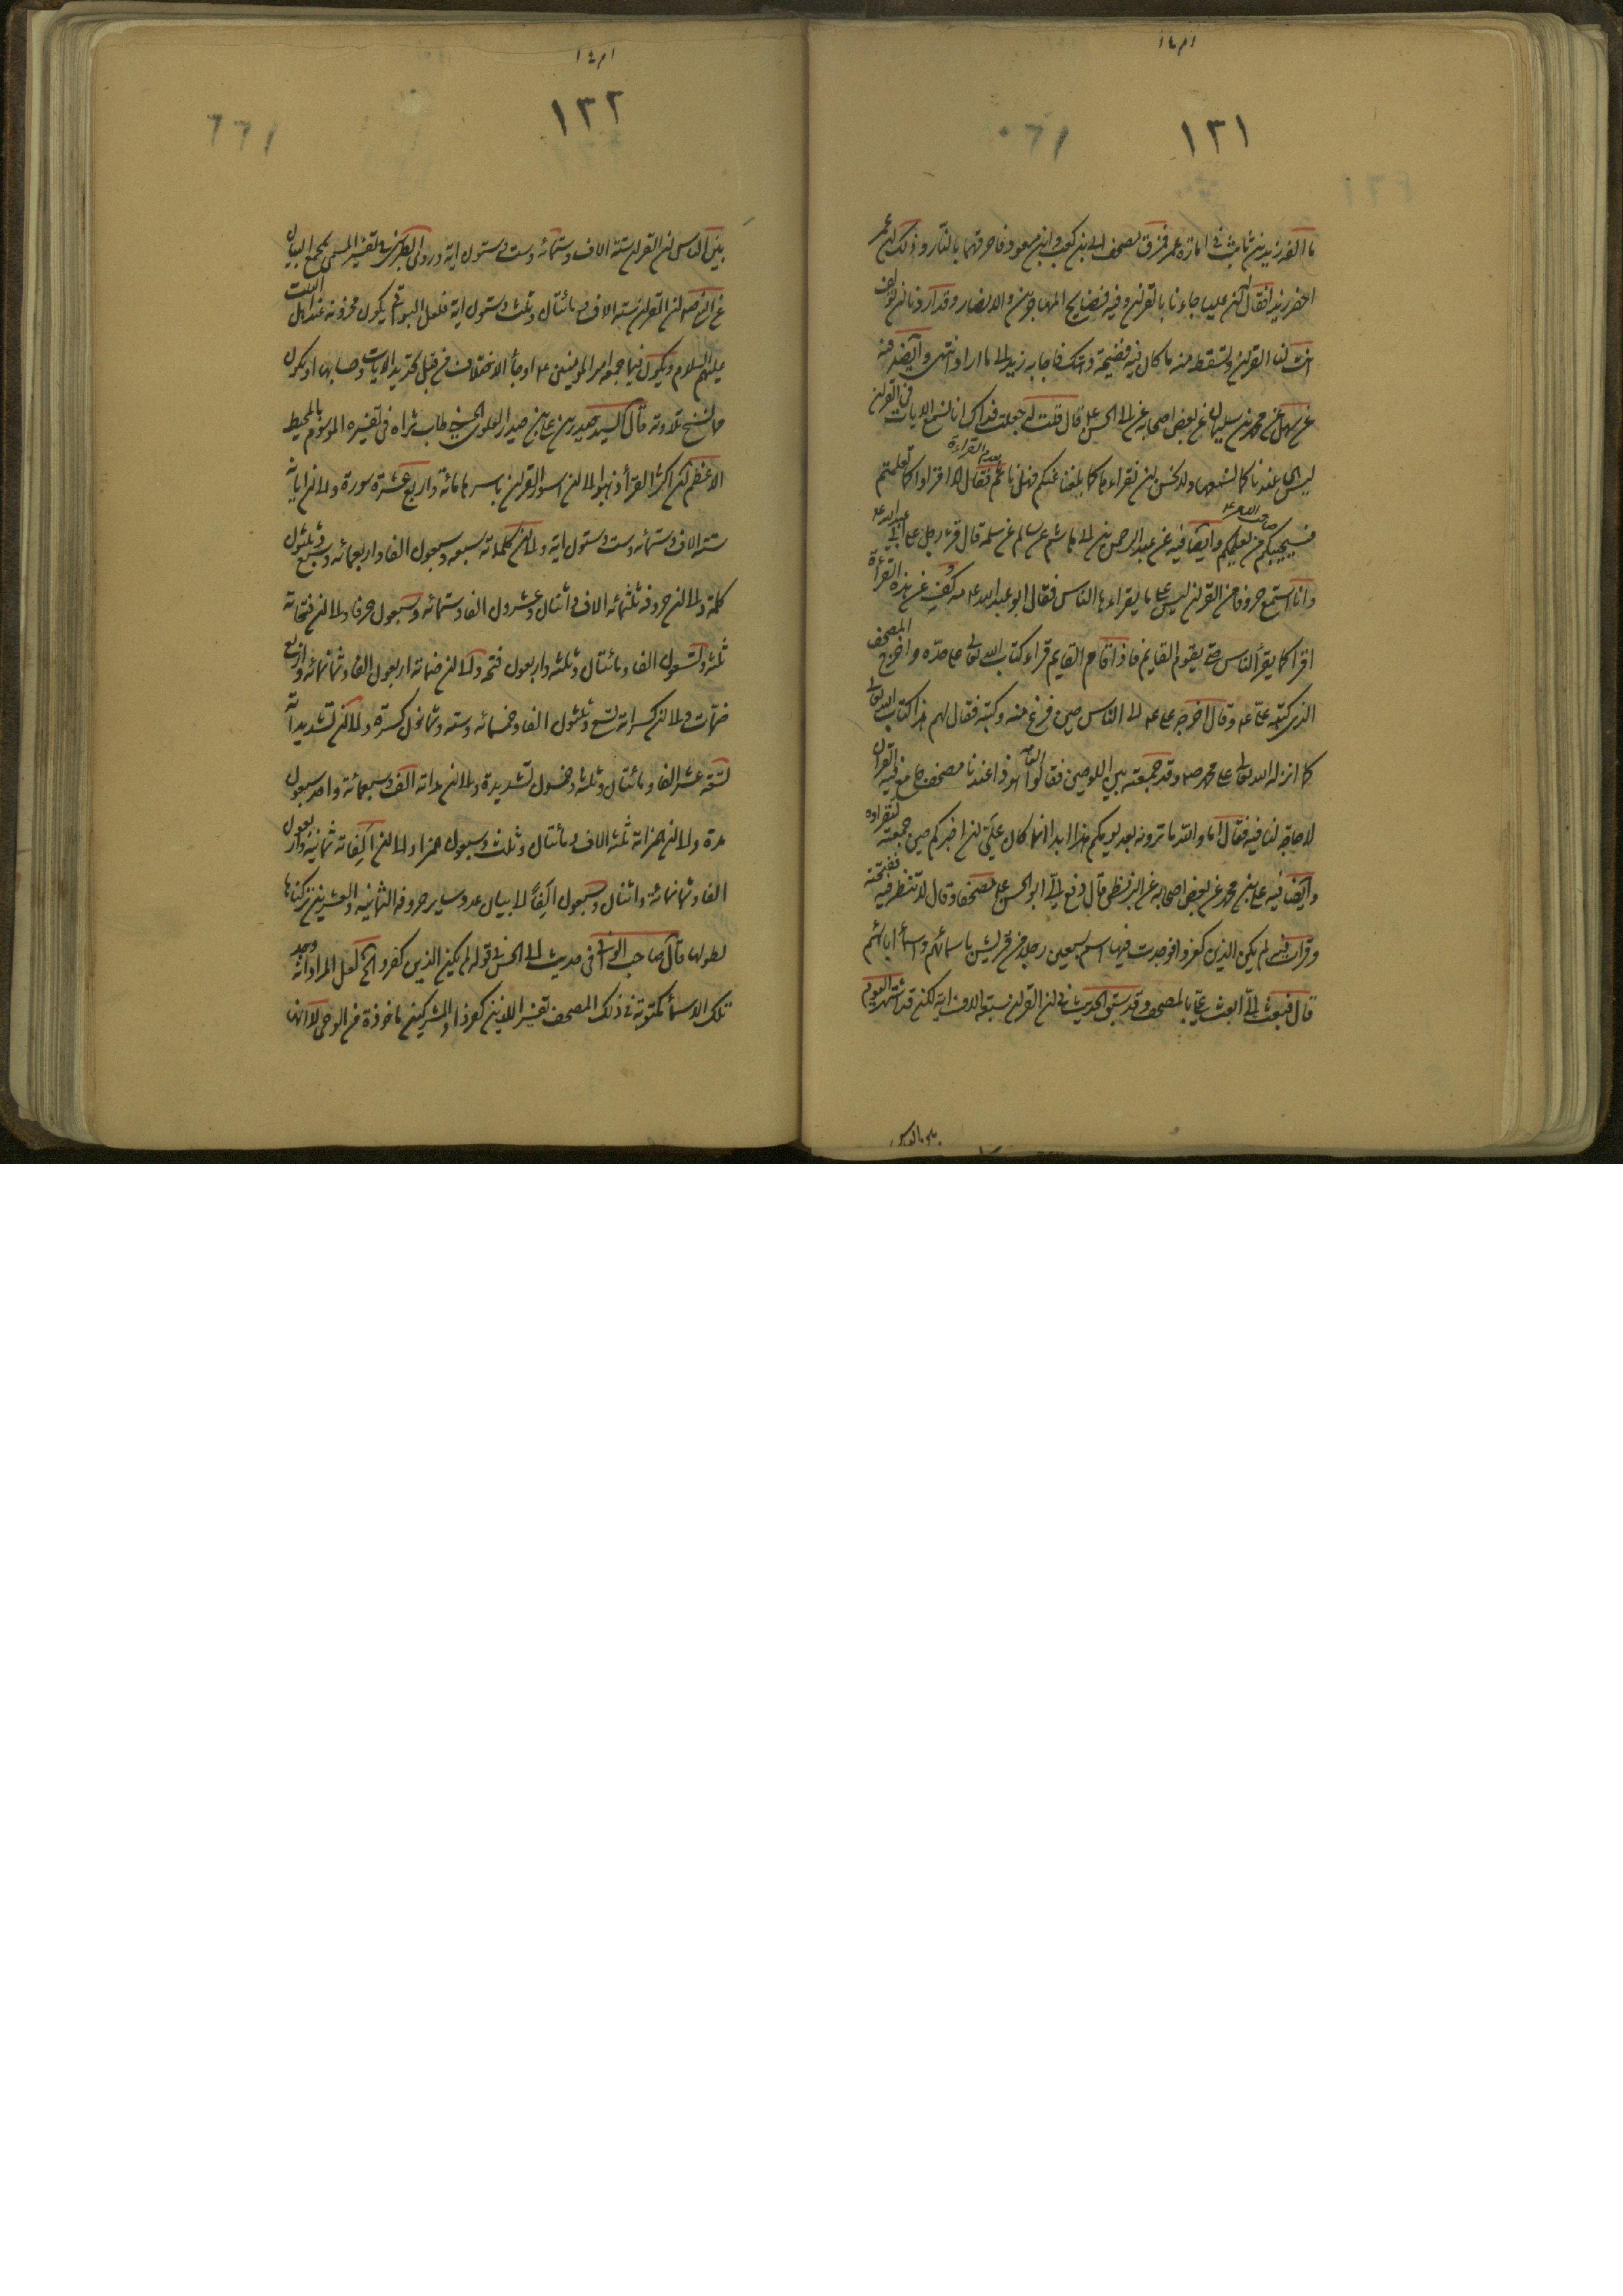 ١٢١
ما الفه زيد بن ثابت في امارة عمر فمزق مصحف ابي بن كعب وابن مسعود فاحرقهما بالنار وذلك لان عمر
احضر زيدا فقال ان عليا جاءنا بالقران وفيه فضايح المهاجرين والانصار وقد اردنا ان تولف
انت لنا القران وتسقط منه ما كان فيه فضيحة وهتك فاجابه زيد الى ما اراد انتهى وايضا فيه
عن سهل عن محمد بن سليمان عن بعض اصحابه عن ابي الحسن قال قلت له جعلت فداك انا نسمع الايات في القران
ليس هي عندنا كما نسمعها ولا نحسن ان نقراءها كما بلغنا عنكم فهل ناثم فقال لا اقراوا كما تعلمتم
فسيجيئكم من يعلمكم وايضا فيه عن عبد الرحمن بن ابي هاشم عن سالم عن سلمة قال قرء رجل على ابي عبد الله ع
وانا استمع حروفا من القران ليس على ما يقراءها الناس فقال ابو عبد الله ع مه كف عن هذه القراءة
اقرا كما يقرا الناس حتى يقوم القايم فاذا قام القايم قراء كتاب الله تعالى على حده واخرج المصحف
الذي كتبه علي ع وقال اخرجه علي ع الى الناس حين فرغ منه وكتبه فقال لهم هذا كتاب الله تعالى
كما انزله الله تعالى على محمد ص وقد جمعته بين اللوحين فقالوا هوذا عندنا مصحف جامع فيه القران
لا حاجة لنا فيه فقال اما والله ما ترونه بعد يومكم هذا ابدا انما كان علي ان اخبركم حين جمعته لتقراوه
وايضا فيه علي بن محمد عن بعض اصحابه عن البزنطي قال دفع الي ابو الحسن ع مصحفا وقال لا تنظر فيه ففتحته
وقرات فيه لم يكن الذين كفروا فوجدت فيها اسم سبعين رجلا من قريش باسمائهم واسماء ابائهم
قال فبعث الي ابعث الي بالمصحف وقد سبق الحديث في ان القران سبعة الاف اية لكن قد اشتهر اليوم
١٢٢
بين الناس ان القران ستة الاف وستمائه وست وستون اية وروى الطبرسي في تفسير المسمى بمجمع البيان
عن النبي ص ان القران ستة الاف ومائتان وثلث وستون اية فلعل البواقي يكون مخزونه عند اهل البيت
عليهم السلام ويكون فيما جمعه امير المومنين ع او جاء الاختلاف من قبل تحديد الايات وحسابها او يكون
مما نسخ تلاوته قال السيد حيدر بن علي بن حيدر العلوي الحسيني طاب ثراه في تفسيره الموسوم بالمحيط
الاعظم ان اكثر القراء ذهبوا الى ان سور القران باسرها مائة واربع عشرة سورة والى ان اياته
ستة الاف وستمائه وست وستون اية والى ان كلماته سبعه وسبعون الفا واربعمائه وسبع وثلثون
كلمة والى ان حروفه ثلثمائه الاف واثنان وعشرون الفا وستمائه وسبعون حرفا والى ان فتحاته
ثلثه وتسعون الفا ومائتان وثلثه واربعون فتحه والى ان ضماته اربعون الفا وثمانمائه واربع
ضمات والى ان كسراته تسع وثلثون الفا وخمسمائه وسته وثمانون كسرة والى ان تشديداته
تسعة عشر الفا ومائتان وثلثه وخمسون تشديدة والى ان مداته الف وسبعمائة واحد وسبعون
مدة والى ان همزاته ثلثه الاف ومائتان وثلث وسبعون همزا والى ان الفاته ثمانيه واربعون
الفا وثمانمائة واثنان وسبعون الفا لا بيان عدد ساير حروفه الثمانيه والعشرين تركناها
لطولها قال صاحب الوافي في حديث ابي الحسن في قوله لم يكن الذين كفروا الخ لعل المراد انه وجد
تلك الاسماء مكتوبة في ذلك المصحف تفسيرا للذين كفروا والمشركين ماخوذة من الوحي لا انها